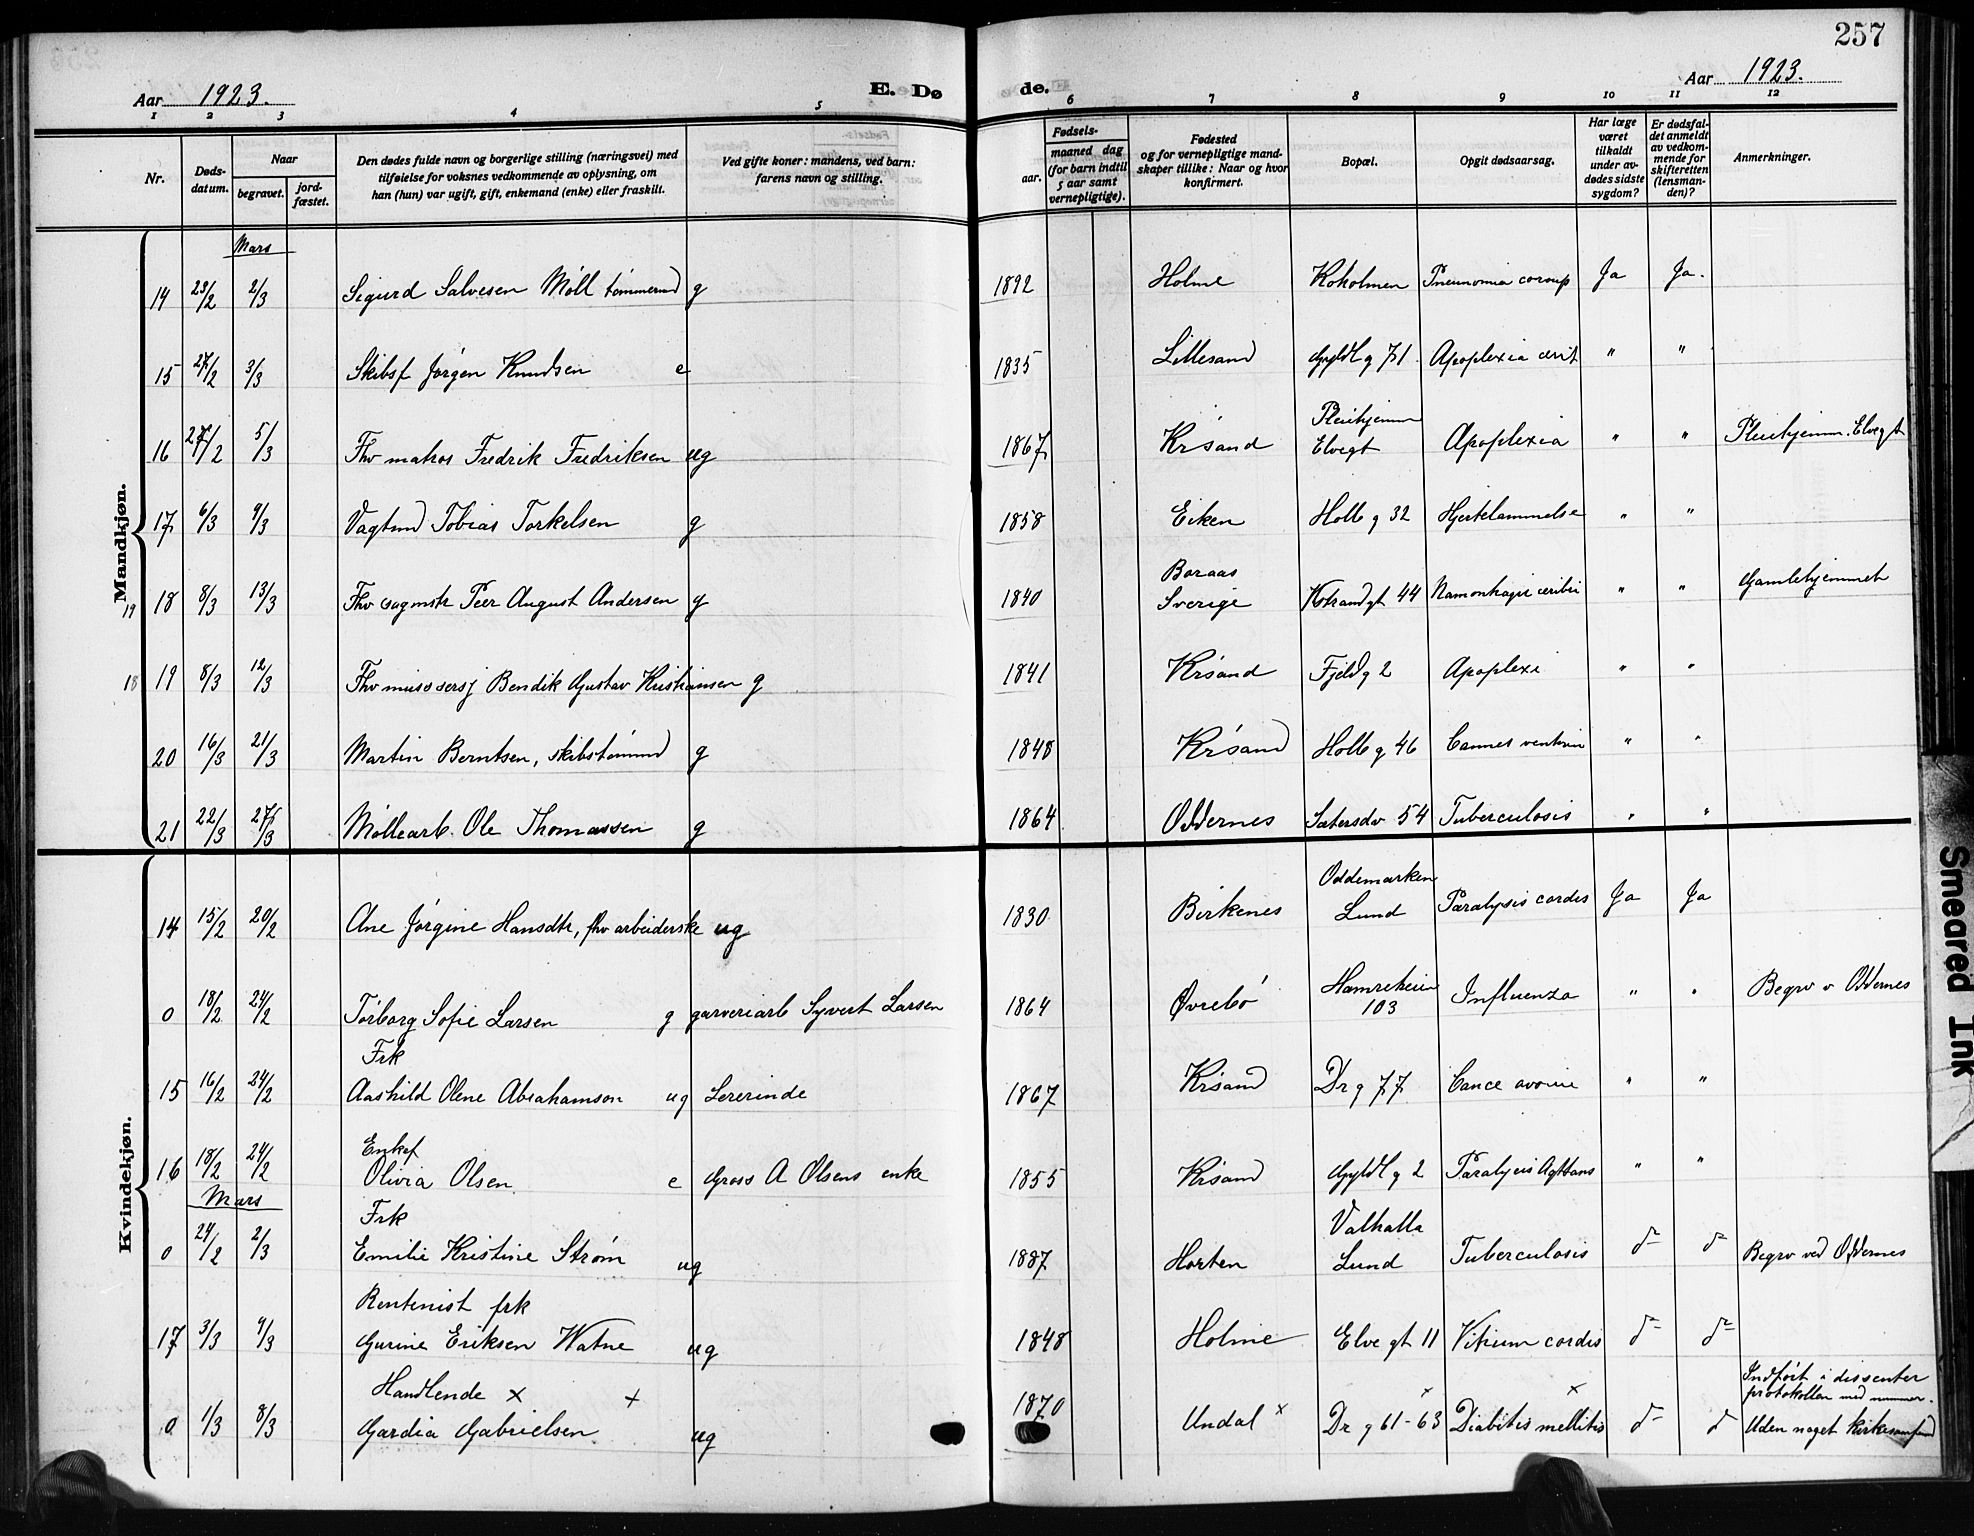 257
Aar 1923.
E. Dø
de.
Aar 1923.
1 2 3 4 5 6 7 8 9 10 11 12
Nr.
Døds-
datum.
Naar
begravet.
jord-
fæstet.
Den dødes fulde navn og borgerlige stilling (næringsvei) med
tilføielse for voksnes vedkommende av oplysning, om
han (hun) var ugift, gift, enkemand (enke) eller fraskilt.
Ved gifte koner: mandens, ved barn:
farens navn og stilling.
Fødsels-
aar.
maaned dag
(for barn indtil
5 aar samt
vernepligtige).
Fødested
og for vernepligtige mand-
skaper tillike: Naar og hvor
konfirmert.
Bopæl.
Opgit dødsaarsag.
Har læge
været
tilkaldt
under av-
dødes sidste
sygdom?
Er dødsfal-
det anmeldt
av vedkom-
mende for
skifteretten
(lensman-
den)?
Anmerkninger.
Mandkjøn.
Mars
14 23/2 2/3 Sigurd Salvesen Møll tømmermd g 1892 Holme Kokolmen Pneunomia coroup Ja Ja.
15 27/2 3/3 Skibsf Jørgen Knudsen e 1835 Lillesand Gyldl g 71 Apoplexia " "
16 27/2 5/3 Fhv matros Fredrik Fredriksen ug 1867 Krsand Pleiehjemm
Elvegt Apoplexia " " Pleiehjemm. Elvegt
17 6/3 9/3 Vagtmd Tobias Torkelsen g 1858 Eiken Holb g 32 Hjertelammelse " "
19 18 8/3 13/3 Fhv sagmstr Peer August Andersen g 1840 Boraas
Sverige Kstrandgt 44 " " Gamlehjemmet
18 19 8/3 12/3 Fhv Bendik Gustav Kristiansen g 1841 Krsand Fjeldg 2 Apoplexi " "
20 16/3 21/3 Martin Berntsen, skibstømmd g 1848 Krsand Holb g 46 " "
21 22/3 27/3 Møllearb. Ole Thomassen g 1864 Oddernes Sætersdv 54 Tuberculosis " "
Kvindekjøn.
14 15/2 20/2 Ane Jørgine Hansdtr, fhv arbeiderske ug 1830 Birkenes Oddemarken
Lund Paralysis cordis Ja Ja
0 18/2 24/2 Torborg Sofie Larsen g garveriarb Syvert Larsen 1864 Øvrebø Hamreheien
103 Influenza " " Begrv v Oddernes
Frk
15 16/2 24/2 Aashild Olene Abrahamson ug Lererinde 1867 Krsand Dr g 77 Cance " "
Enkef
16 18/2 24/2 Olivia Olsen e Gross A Olsens enke 1855 Krsand Gyldl g 2 Paralysis Agitans " "
Mars
Frk
0 24/2 2/3 Emilie Kristine Strøm ug 1887 Horten Valhalla
Lund Tuberculosis d- d- Begrv ved Oddernes
Rentenist frk
17 3/3 9/3 Gurine Eriksen Watne ug 1848 Holme Elve gt 11 Vitium cordis d- d-
Handlende x +
0 1/3 8/3 Gardia Gabrielsen ug 1870 Undal x Dr g 61-63 x Diabitis mellitis x d- d
Indført i dissenter
protokollen med nummer.
Uden noget kirkesamfund
Smeared Ink